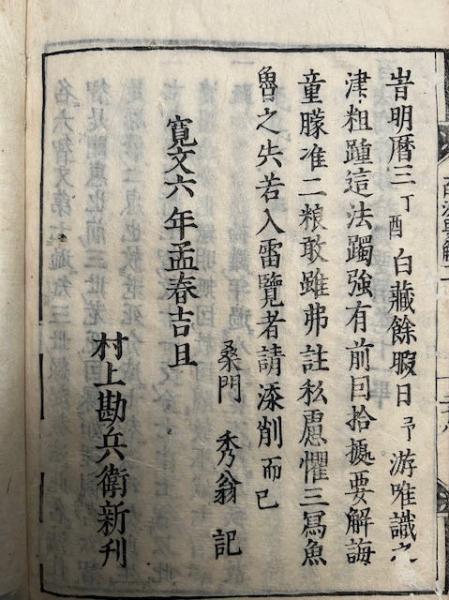 旹明曆三丁酉白藏餘暇日予游唯識之
津粗踵這法躅強有前囙拾摭要解誨
童朦准二粮敢雖弗註私慮懼三冩魚
魯之失若入雷覽者請添削而已
桒門 秀翁 記
寛文六年孟春吉旦
村上勘兵衛新刊